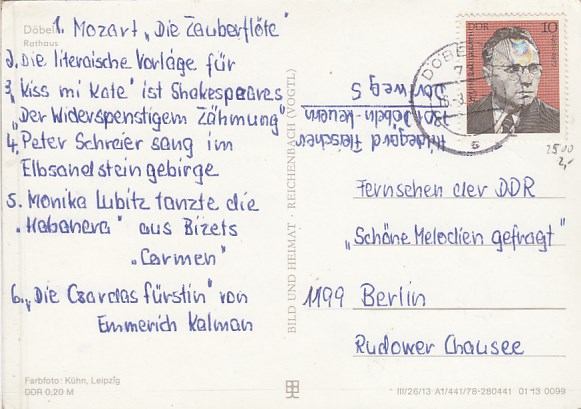 Döbeln
Rathaus
1. Mozart „Die Zauberflöte"
2. Die literaische Vorlage für
3. "Kiss mi Kate" ist Shakespeares
„Der Widerspenstigem Zähmung"
4. Peter Schreier sang im
Elbsandsteingebirge
5. Monika Lubitz tanzte die
„Habanera" aus Bizets
„Carmen"
6. „Die Czardas fürstin" von
Emmerich Kalman
Farbfoto: Kühn, Leipzig
DDR 0,20 M
BILD UND HEIMAT · REICHENBACH (VOGTL)
Hildegard Fleischer
Döbeln-Keuern
Dorfweg 5
DDR 10
DÖBE
2500
2,-
Fernsehen der DDR
„Schöne Melodien gefragt"
1199 Berlin
Rudower Chausee
III/26/13 A1/441/78-280441 01 13 0099